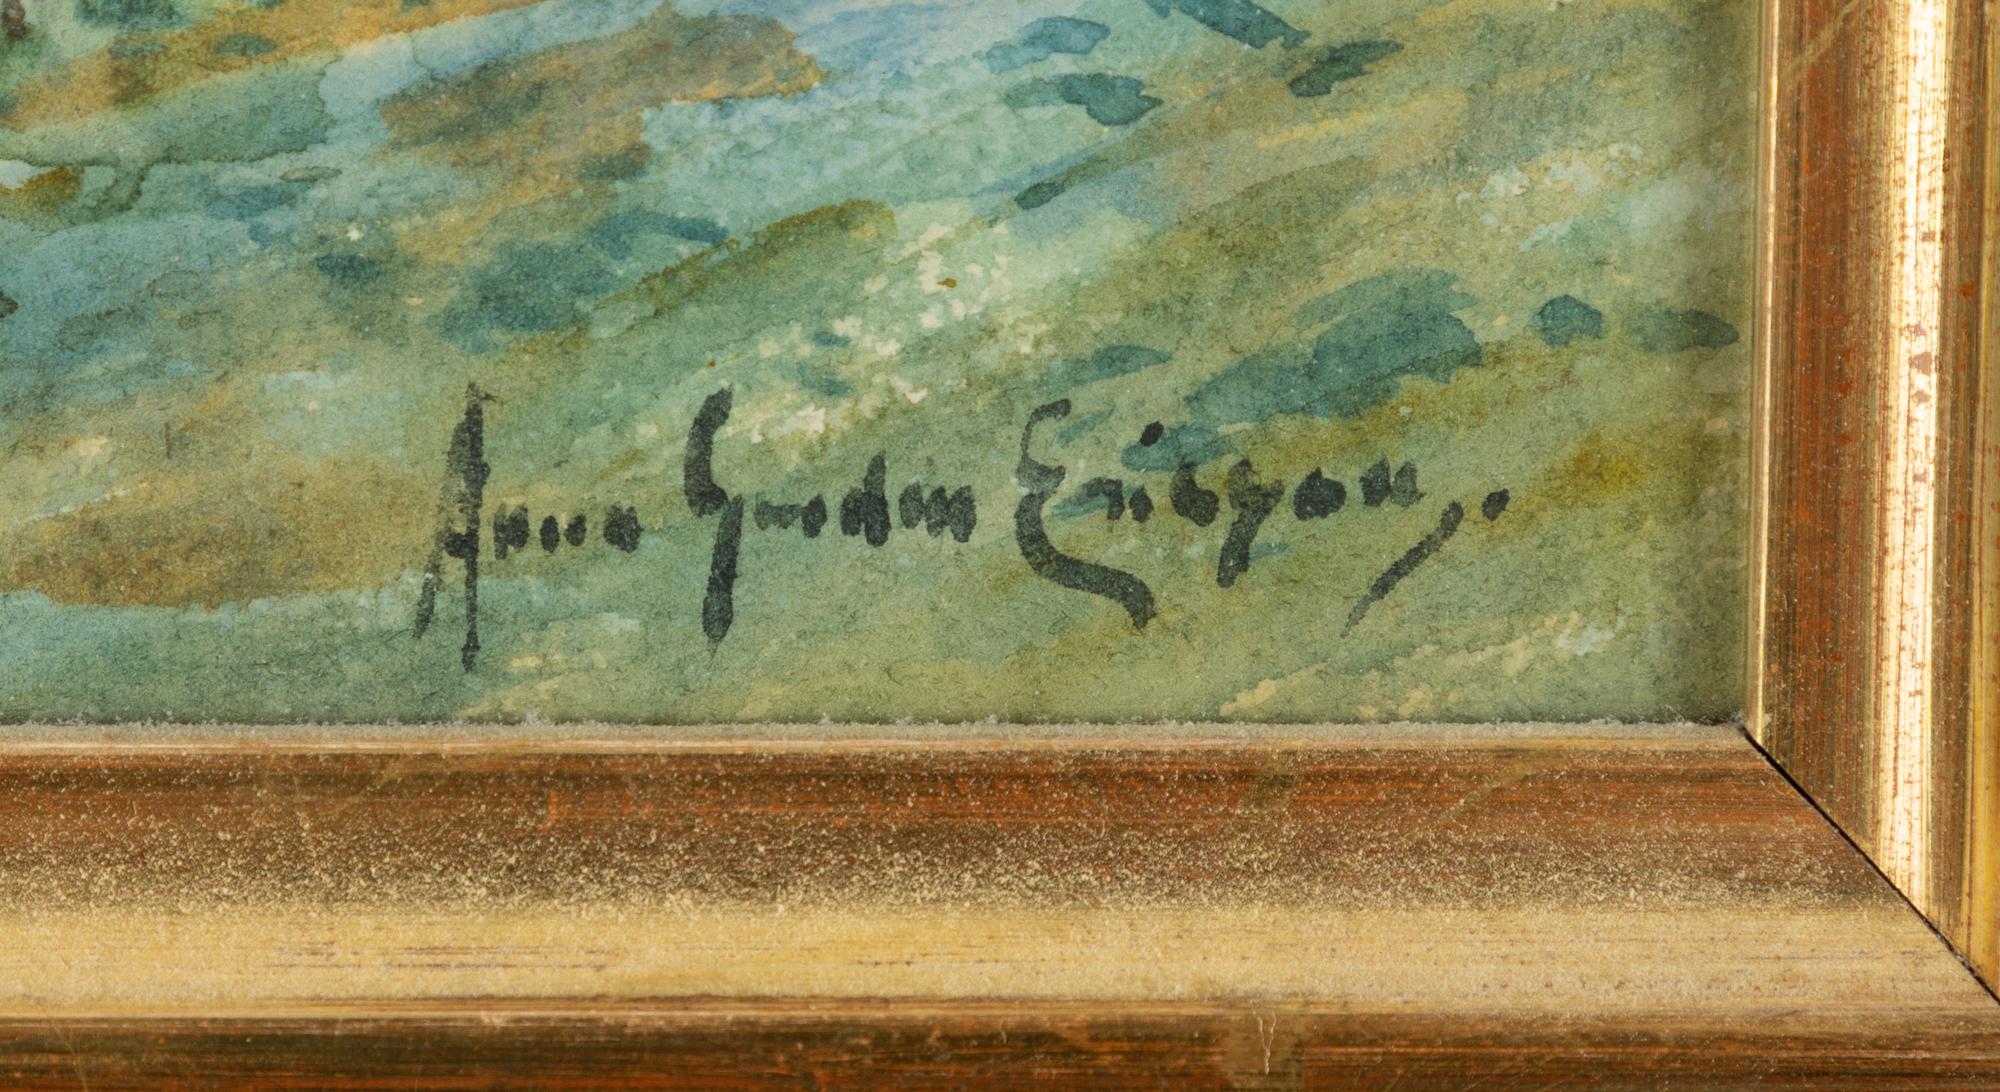 Anna Gardell Ericson.